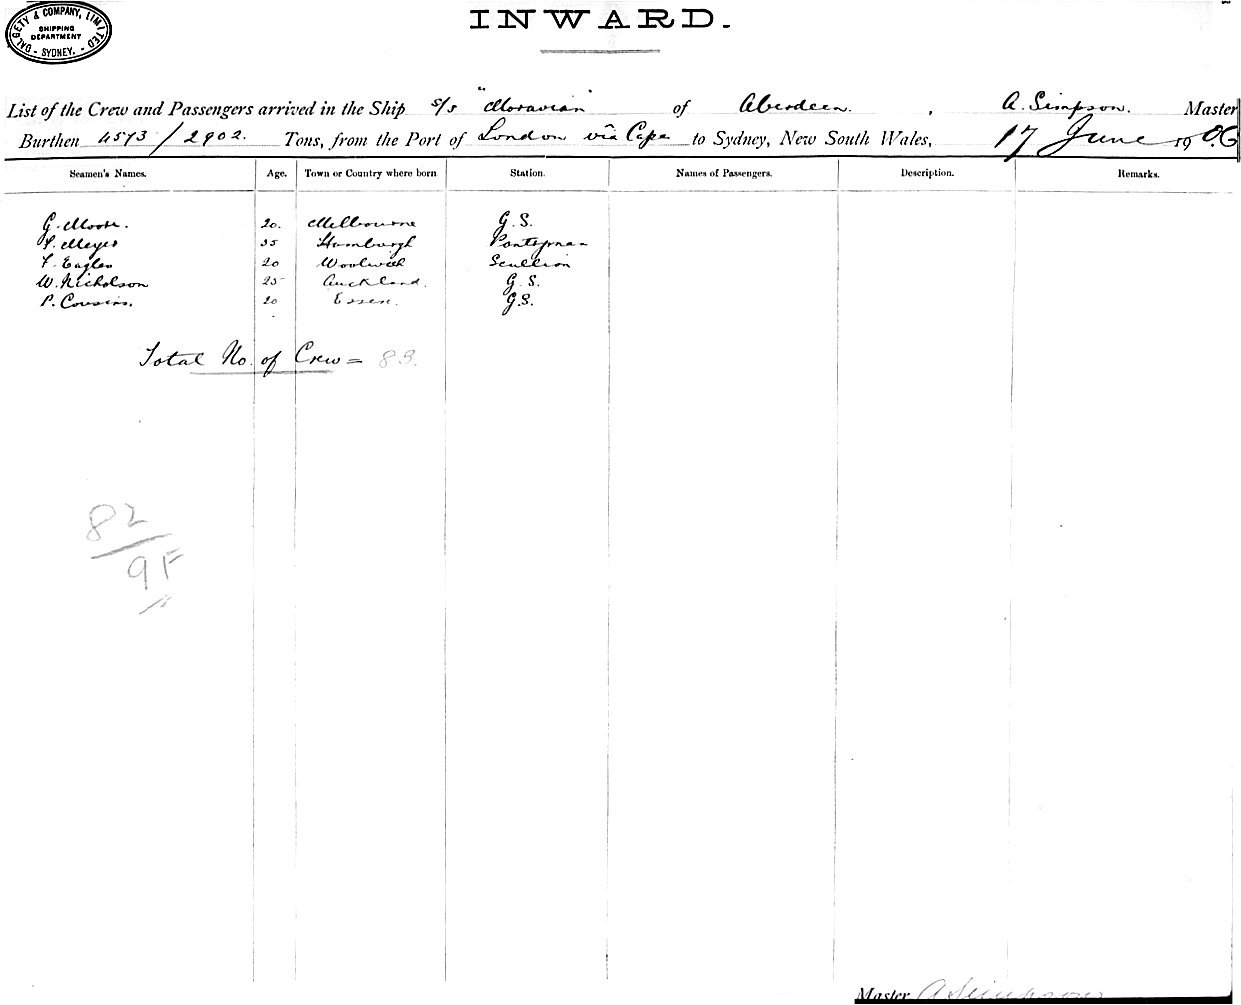 DALGETY & COMPANY, LIMITED
SHIPPING
DEPARTMENT
- SYDNEY. -
INWARD.
List of the Crew and Passengers arrived in the Ship s/s "Moravian" of Aberdeen. , A. Simpson. Master
Burthen 4573/2902. Tons, from the Port of London via Cape to Sydney, New South Wales, 17 June 1906
Seamen's Names. Age. Town or Country where born Station. Names of Passengers. Description. Remarks.
G. Moore. 20. Melbourne G.S.
Meyer 35 Hamburgh Pantryman
Eagles 20 Woolwich Scullion
W. Nicholson 25 Auckland. G.S.
P. Cousins. 20 Essex. G.S.
Total No. of Crew = 83.
82
9F
Master A Simpson